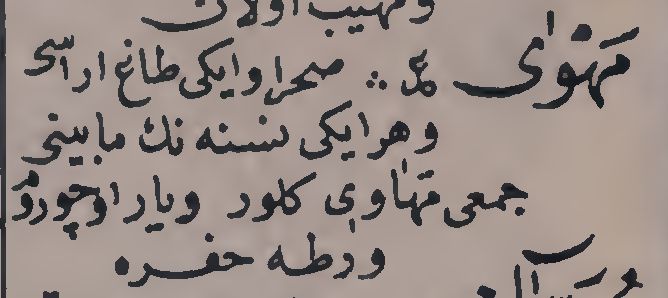 ومهيب اولان
مَهْوٰى ع صحرا و ايكى طاغ اراسى
و هر ايكى نسنه نك مابينى
جمعى مَهَاوِى كلور و يار اوچورو
و ورطه حفره